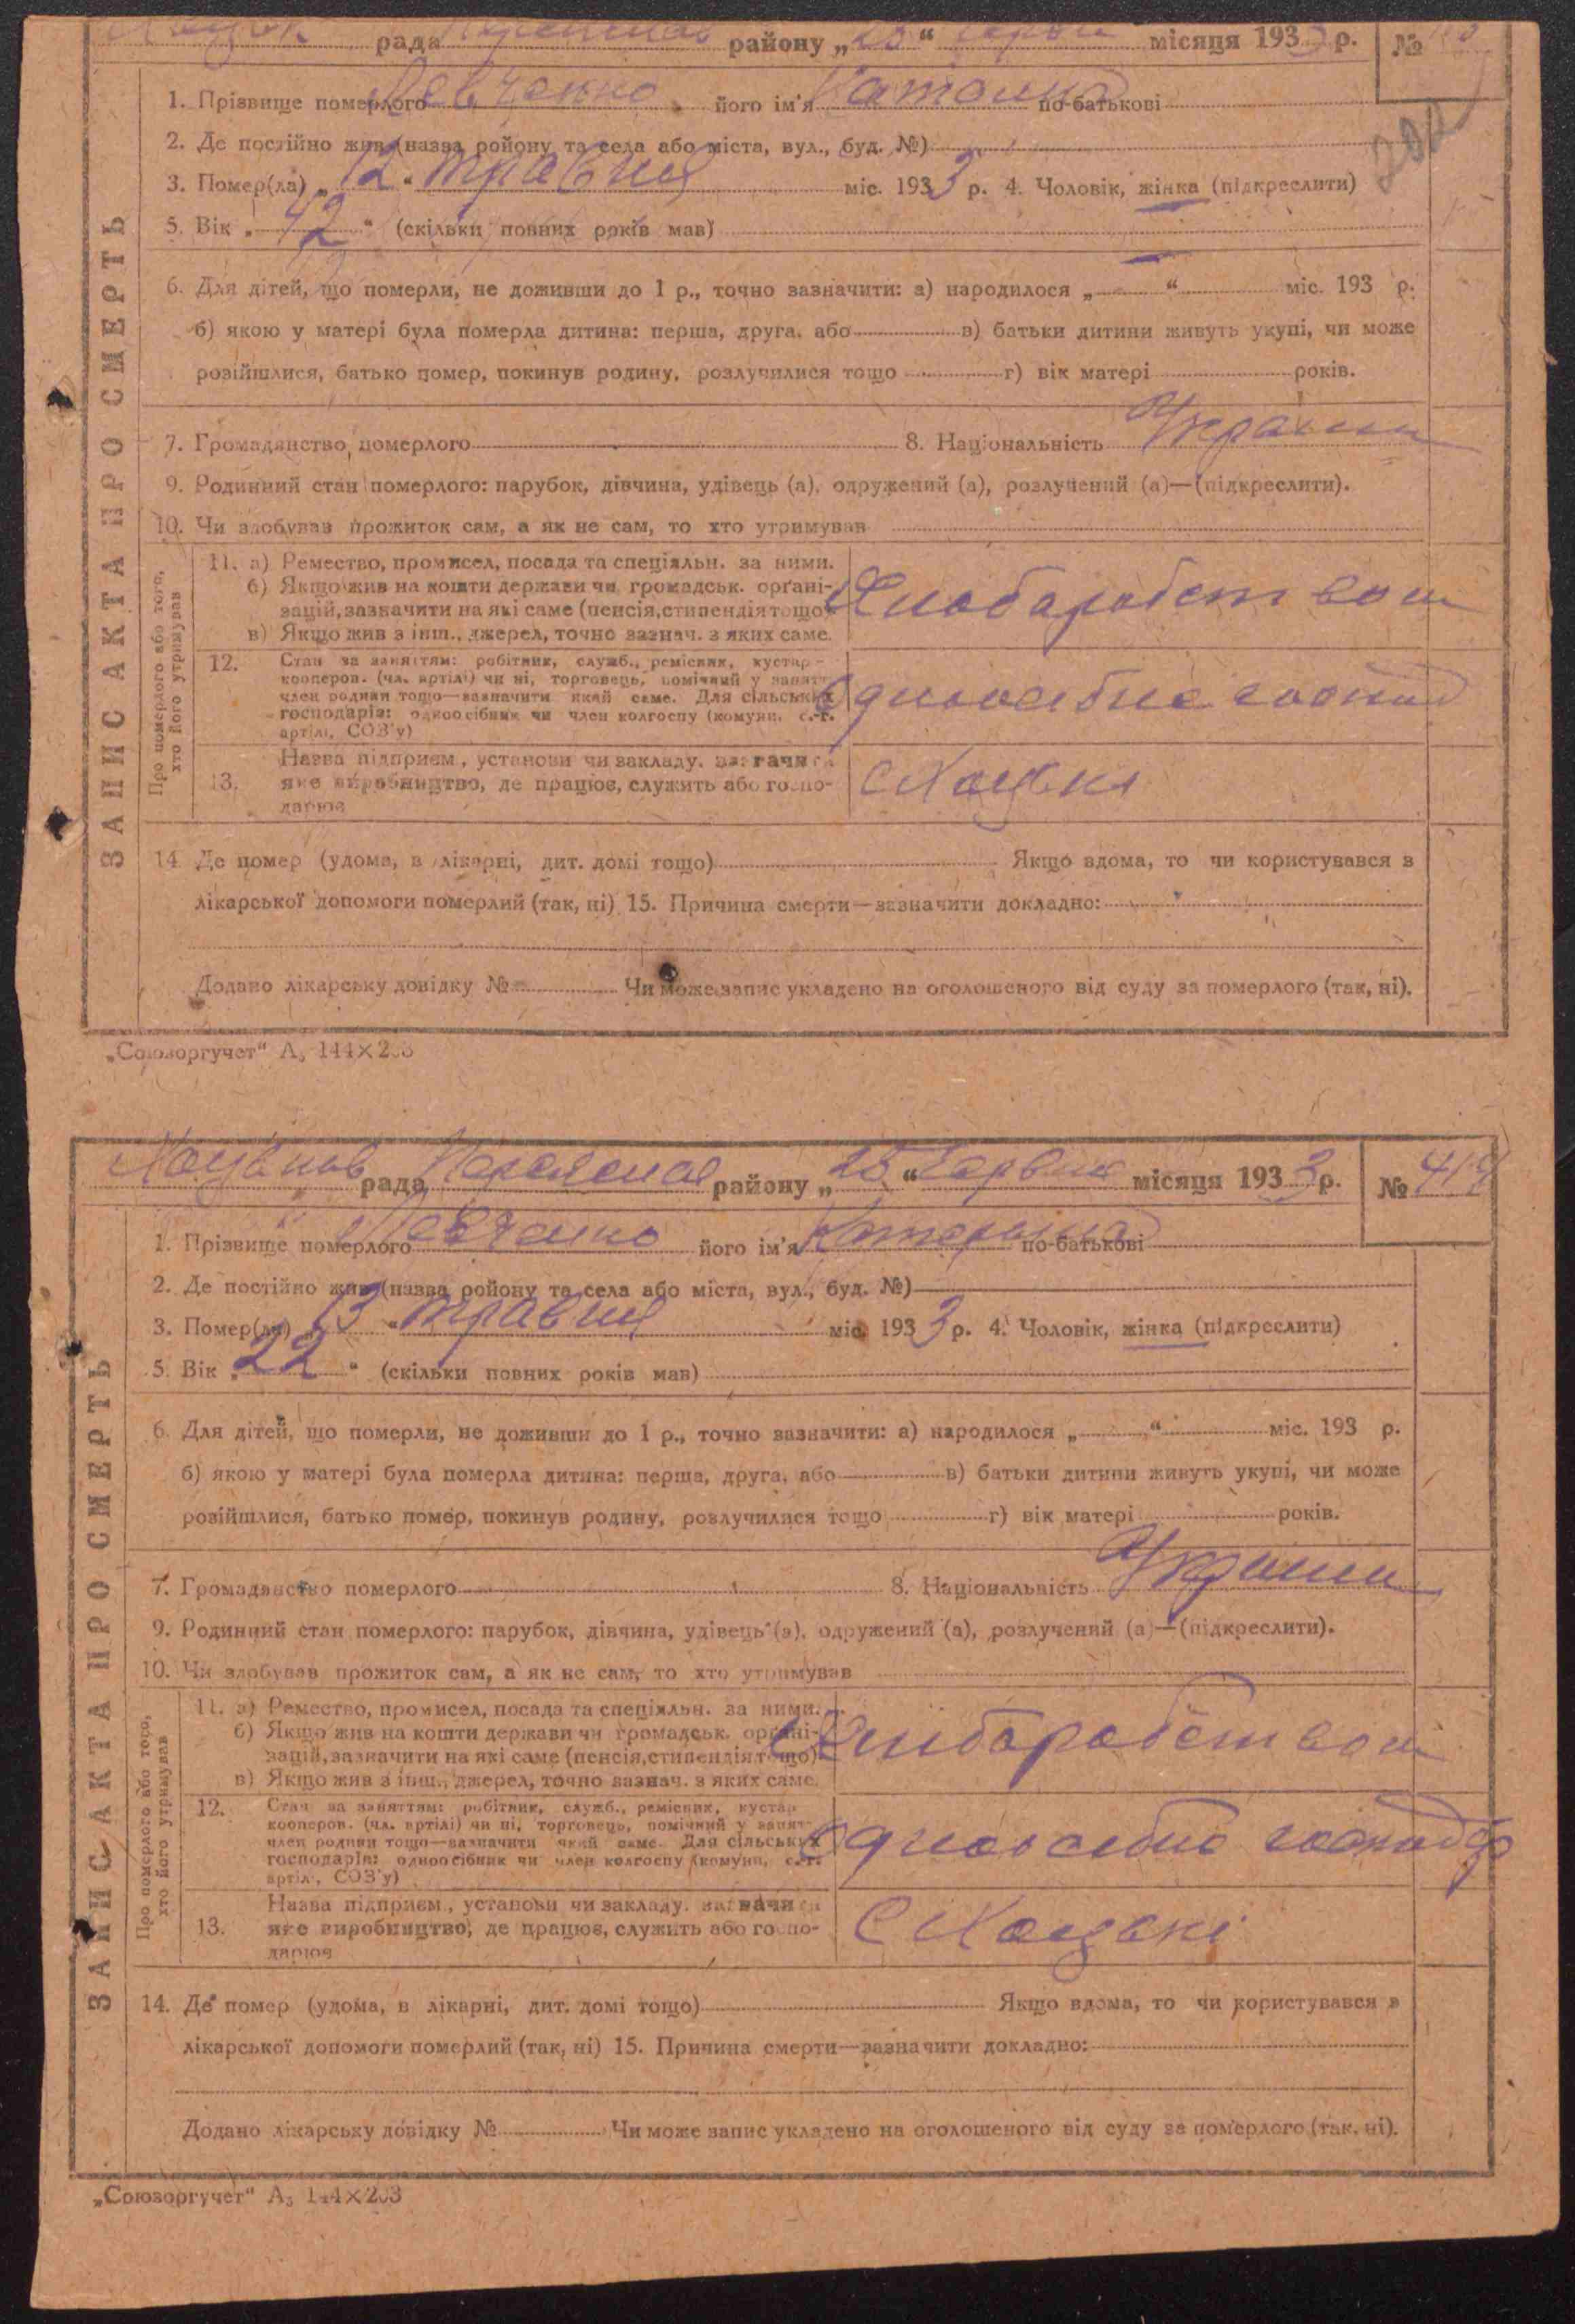 рада району „25“ місяця 1933 р. №
1. Прізвище померлого Левченко його ім'я по-батькові
2. Де постійно жив (назва ройону та села або міста, вул., буд. №)
3. Помер(ла) „12“ травня міс. 1933 р. 4. Чоловік, жінка (підкреслити)
5. Вік „42“ (скільки повних років мав)
6. Для дітей, що померли, не доживши до 1 р., точно зазначити: а) народилося „ “ міс. 193 р.
б) якою у матері була померла дитина: перша, друга, або в) батьки дитини живуть укупі, чи може
розійшлися, батько помер, покинув родину, розлучилися тощо г) вік матері років.
7. Громадянство померлого 8. Національність
9. Родинний стан померлого: парубок, дівчина, удівець (а), одружений (а), розлучений (а)—(підкреслити).
10. Чи здобував прожиток сам, а як не сам, то хто утримував
ЗАПИС АКТА ПРО СМЕРТЬ
Про померлого або того,
хто його утримував
11. а) Ремество, промисел, посада та спеціяльн. за ними.
б) Якщо жив на кошти держави чи громадськ. орґані-
зацій, зазначити на які саме (пенсія, стипендія тощо)
в) Якщо жив з інш., джерел, точно зазнач. з яких саме.
12. Стан за заняттям: робітник, служб., ремісник, кустар
кооперов. (чл. артілі) чи ні, торговець, помічний у занят.
член родини тощо—зазначити який саме. Для сільських
господарів: одноосібник чи член колгоспу (комуни, с.-г.
артілі, СОЗ'у)
13. Назва підприєм., установи чи закладу, зазначити
яке виробництво, де працює, служить або госпо-
дарює
14. Де помер (удома, в лікарні, дит. домі тощо) Якщо вдома, то чи користувався з
лікарської допомоги померлий (так, ні) 15. Причина смерти—зазначити докладно:
Додано лікарську довідку № Чи може запис укладено на оголошеного від суду за померлого (так, ні).
„Союзоргучет“ А₅ 144×203
рада району „25“ червня місяця 1933 р. № 419
1. Прізвище померлого Левченко його ім'я Катерина по-батькові
2. Де постійно жив (назва ройону та села або міста, вул., буд. №)
3. Помер(ла) 13 “ травня міс. 1933 р. 4. Чоловік, жінка (підкреслити)
5. Вік „22“ (скільки повних років мав)
6. Для дітей, що померли, не доживши до 1 р., точно зазначити: а) народилося „ “ міс. 193 р.
б) якою у матері була померла дитина: перша, друга, або в) батьки дитини живуть укупі, чи може
розійшлися, батько помер, покинув родину, розлучилися тощо г) вік матері років.
7. Громадянство померлого 8. Національність
9. Родинний стан померлого: парубок, дівчина, удівець (а), одружений (а), розлучений (а)—(підкреслити).
10. Чи здобував прожиток сам, а як не сам, то хто утримував
ЗАПИС АКТА ПРО СМЕРТЬ
Про померлого або того,
хто його утримував
11. а) Ремество, промисел, посада та спеціяльн. за ними.
б) Якщо жив на кошти держави чи громадськ. орґані-
зацій, зазначити на які саме (пенсія, стипендія тощо)
в) Якщо жив з інш., джерел, точно зазнач. з яких саме.
12. Стан за заняттям: робітник, служб., ремісник, кустар
кооперов. (чл. артілі) чи ні, торговець, помічний у занят.
член родини тощо—зазначити який саме. Для сільських
господарів: одноосібник чи член колгоспу (комуни, с.-г.
артілі, СОЗ'у)
13. Назва підприєм., установи чи закладу, зазначити
яке виробництво, де працює, служить або госпо-
дарює
14. Де помер (удома, в лікарні, дит. домі тощо) Якщо вдома, то чи користувався з
лікарської допомоги померлий (так, ні) 15. Причина смерти—зазначити докладно:
Додано лікарську довідку № Чи може запис укладено на оголошеного від суду за померлого (так, ні).
„Союзоргучет“ А₅ 144×203